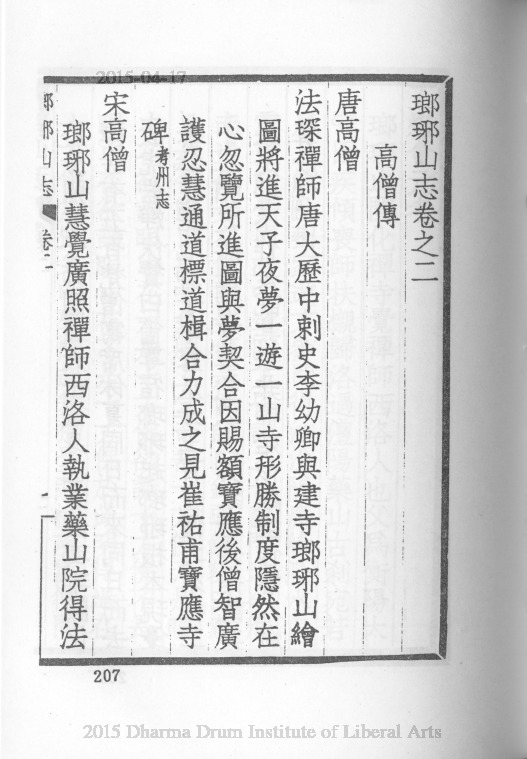 2015-04-17
瑯琊山志卷之二
高僧傳
唐高僧
法琛禪師唐大歷中刺史李幼卿與建寺瑯琊山繪
圖將進天子夜夢一遊一山寺形勝制度隱然在
心忽覽所進圖與夢契合因賜額寶應後僧智廣
護忍慧通道標道楫合力成之見崔祐甫寶應寺
碑考州志
宋高僧
瑯琊山慧覺廣照禪師西洛人執業藥山院得法
瑯琊山志 卷二
207
2015 Dharma Drum Institute of Liberal Arts